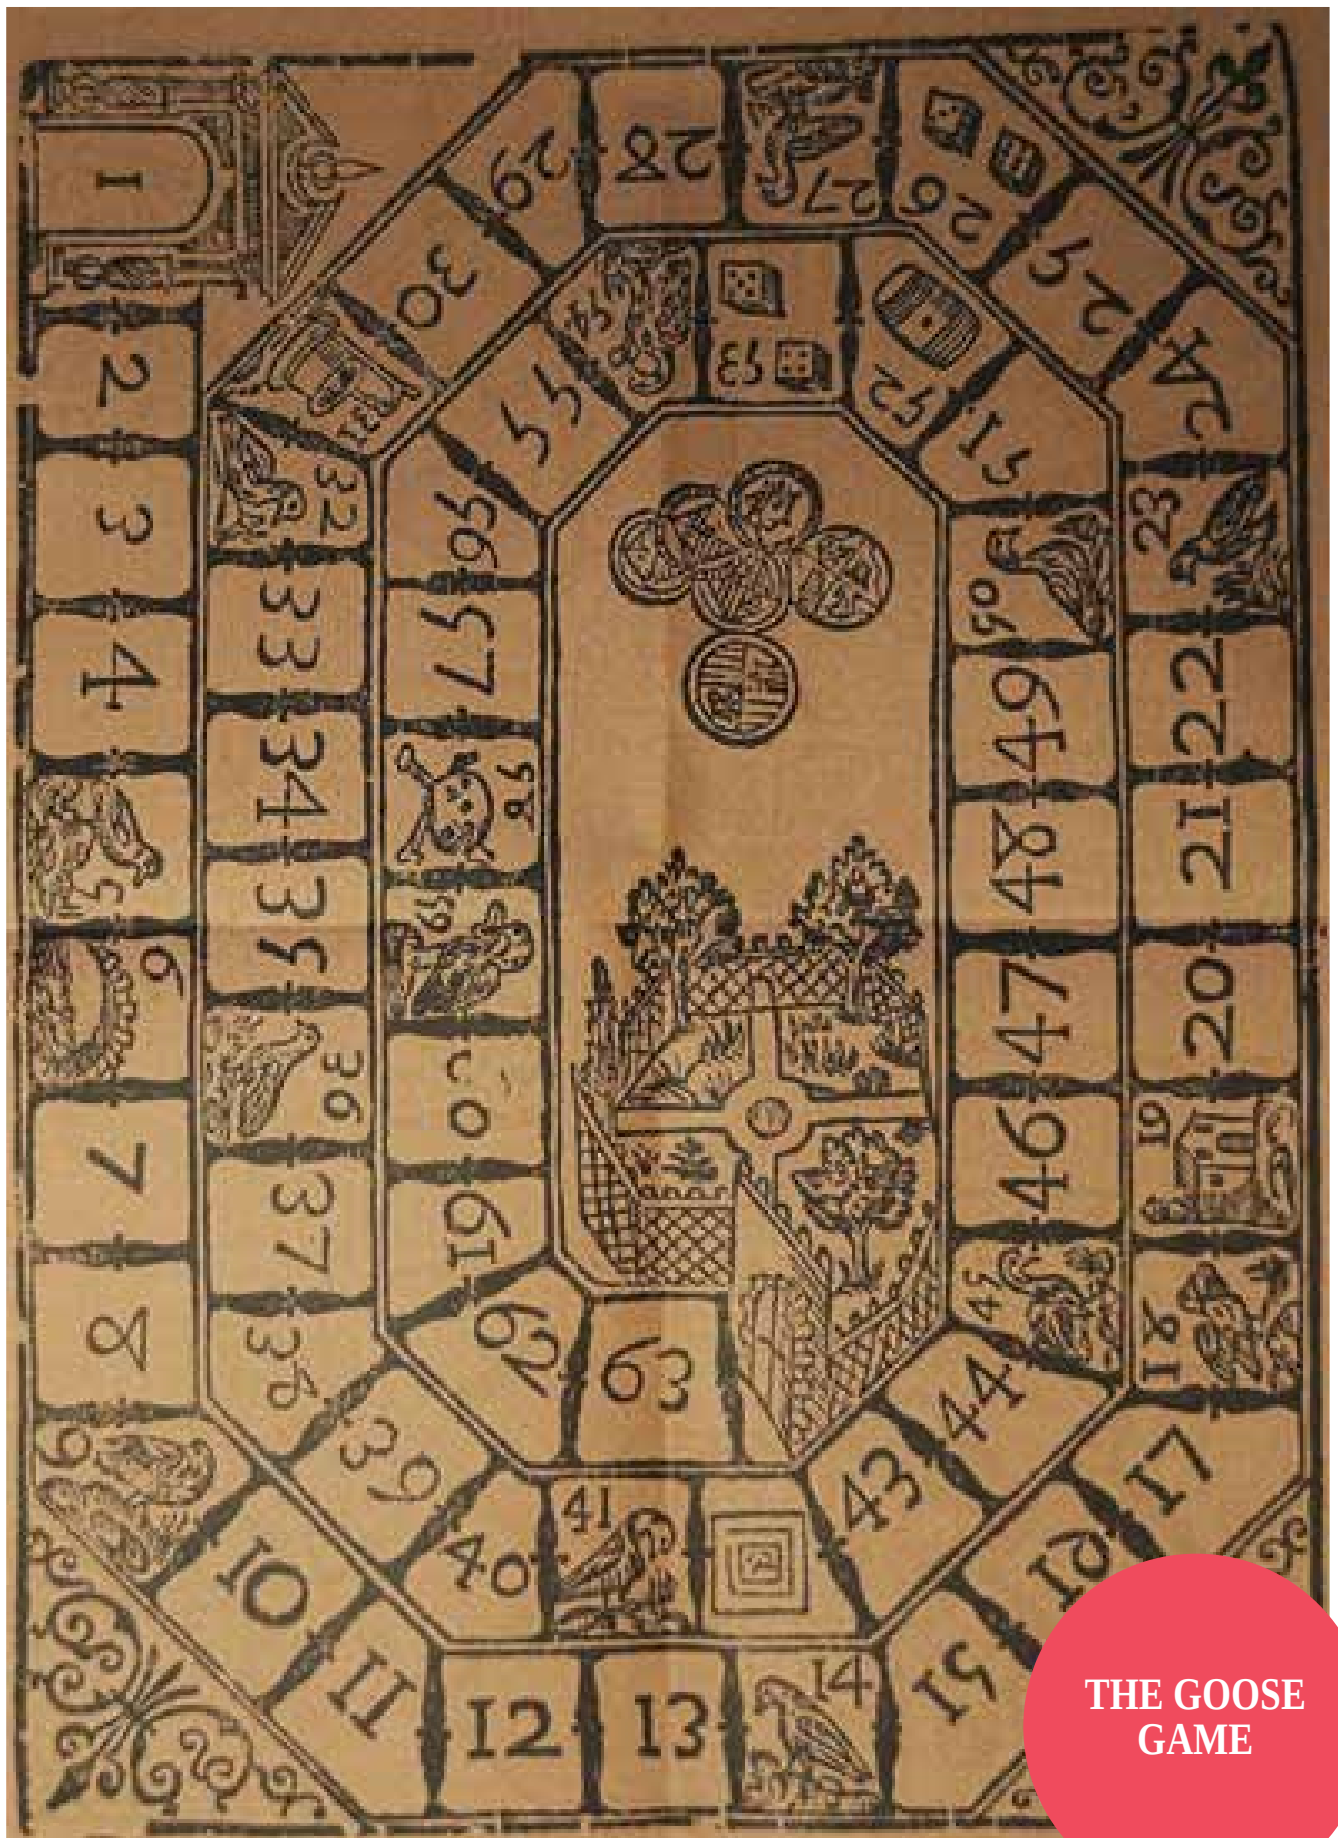 1
2
3
4
5
6
7
8
9
10
11
12
13
14
15
16
17
18
19
20
21
22
23
24
25
26
27
28
29
30
31
32
33
34
35
36
37
38
39
40
41
43
44
45
46
47
48
49
50
51
52
53
54
55
56
57
58
59
61
62
63
THE GOOSE
GAME